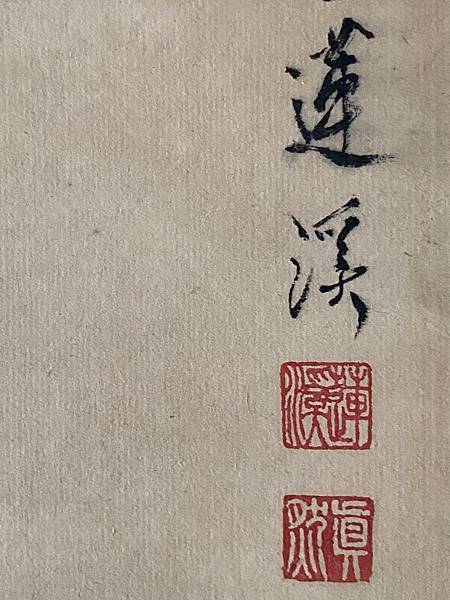 蓮溪
蓮溪
真然